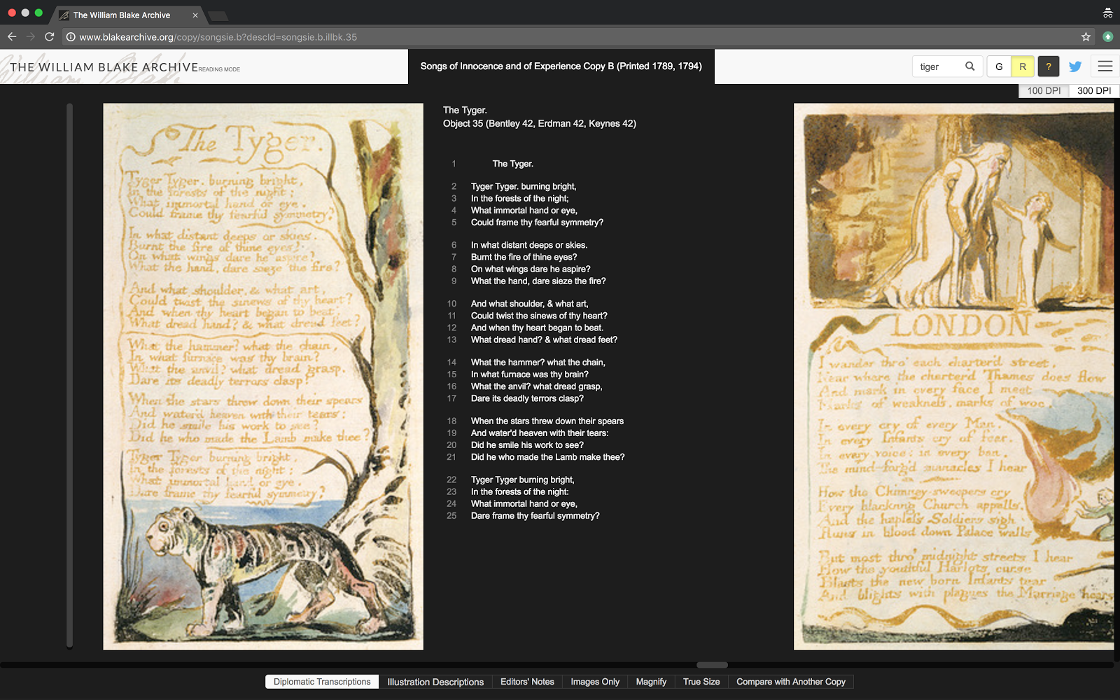 The William Blake Archive
www.blakearchive.org/copy/songsie.b?descId=songsie.b.illbk.35
THE WILLIAM BLAKE ARCHIVE READING MODE
Songs of Innocence and of Experience Copy B (Printed 1789, 1794)
tiger
G R ?
100 DPI 300 DPI
The Tyger.
Tyger Tyger. burning bright,
In the forests of the night;
What immortal hand or eye.
Could frame thy fearful symmetry?
In what distant deeps or skies.
Burnt the fire of thine eyes?
On what wings dare he aspire?
What the hand, dare sieze the fire?
And what shoulder, & what art,
Could twist the sinews of thy heart?
And when thy heart began to beat.
What dread hand? & what dread feet?
What the hammer? what the chain,
In what furnace was thy brain?
What the anvil? what dread grasp.
Dare its deadly terrors clasp!
When the stars threw down their spears
And water'd heaven with their tears:
Did he smile his work to see?
Did he who made the Lamb make thee?
Tyger Tyger burning bright,
In the forests of the night:
What immortal hand or eye.
Dare frame thy fearful symmetry?
The Tyger.
Object 35 (Bentley 42, Erdman 42, Keynes 42)
1 The Tyger.
2 Tyger Tyger. burning bright,
3 In the forests of the night;
4 What immortal hand or eye,
5 Could frame thy fearful symmetry?
6 In what distant deeps or skies.
7 Burnt the fire of thine eyes?
8 On what wings dare he aspire?
9 What the hand, dare sieze the fire?
10 And what shoulder, & what art,
11 Could twist the sinews of thy heart?
12 And when thy heart began to beat.
13 What dread hand? & what dread feet?
14 What the hammer? what the chain,
15 In what furnace was thy brain?
16 What the anvil? what dread grasp,
17 Dare its deadly terrors clasp?
18 When the stars threw down their spears
19 And water'd heaven with their tears:
20 Did he smile his work to see?
21 Did he who made the Lamb make thee?
22 Tyger Tyger burning bright,
23 In the forests of the night:
24 What immortal hand or eye,
25 Dare frame thy fearful symmetry?
LONDON
I wander thro' each charter'd street,
Near where the charter'd Thames does flow
And mark in every face I meet
Marks of weakness, marks of woe.
In every cry of every Man,
In every Infants cry of fear,
In every voice; in every ban,
The mind-forg'd manacles I hear
How the Chimney-sweepers cry
Every blackning Church appalls,
And the hapless Soldiers sigh
Runs in blood down Palace walls
But most thro' midnight streets I hear
How the youthful Harlots curse
Blasts the new born Infants tear
And blights with plagues the Marriage hears
Diplomatic Transcriptions Illustration Descriptions Editors' Notes Images Only Magnify True Size Compare with Another Copy